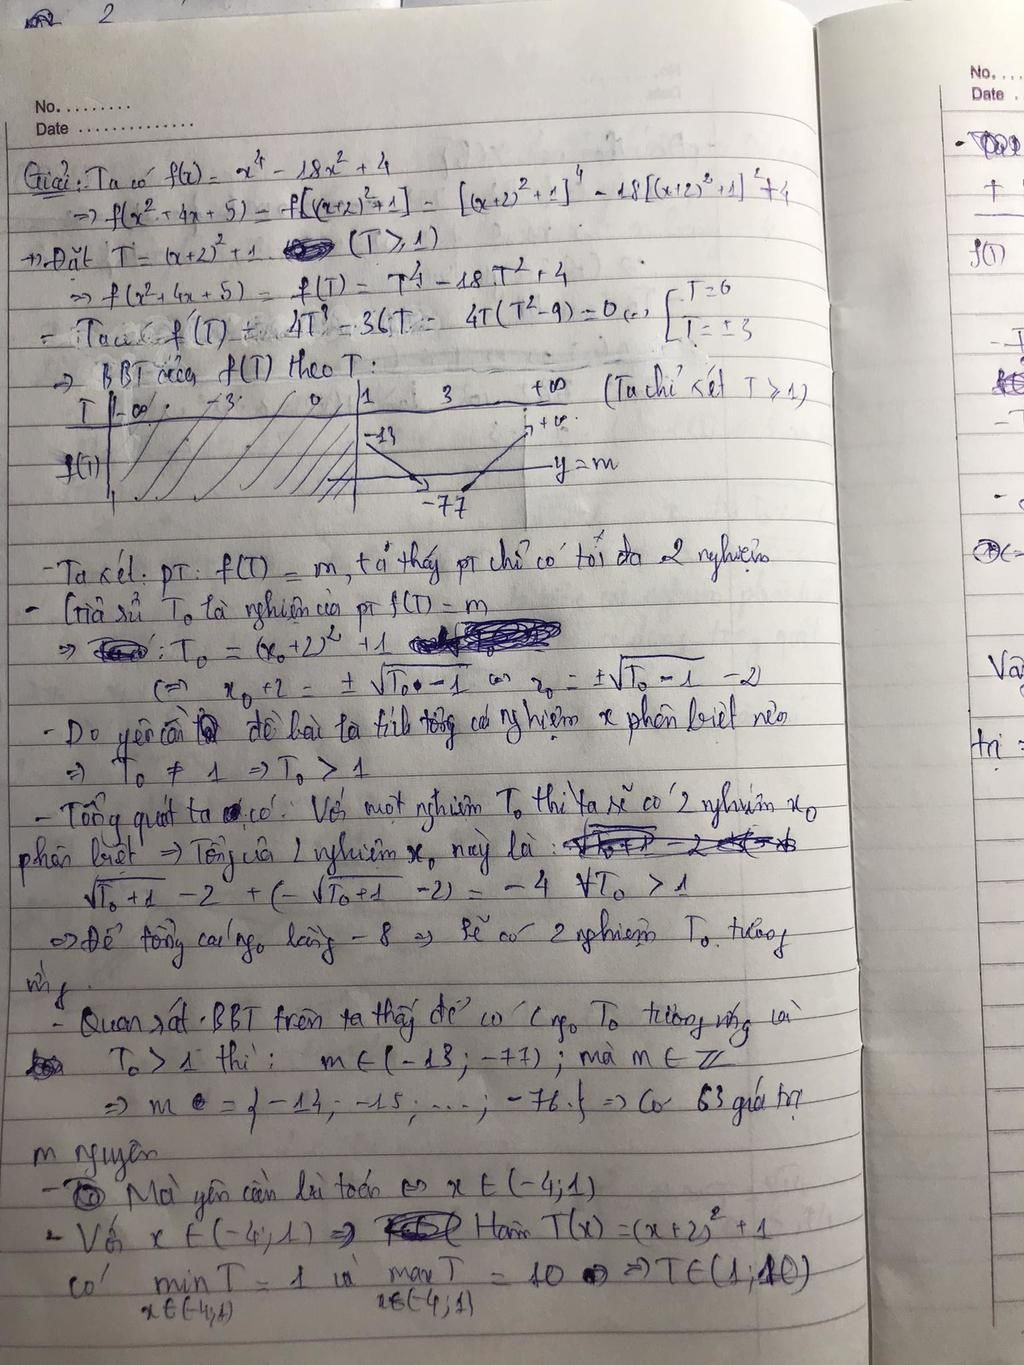 2
No. .........
Date ...............
Giải: Ta có f(x) = x⁴ - 18x² + 4
=> f(x² + 4x + 5) = f[(x+2)² + 1] = [(x+2)² + 1]⁴ - 18[(x+2)² + 1]² + 4
+) Đặt T = (x+2)² + 1 (T ⩾ 1)
=> f(x² + 4x + 5) = f(T) = T⁴ - 18T² + 4
- Ta có f'(T) = 4T³ - 36T = 4T(T² - 9) = 0 <=> [ T = 0
T = ±3
=> BBT của f(T) theo T:
T -∞ -3 0 1 3 +∞ (Ta chỉ xét T ⩾ 1)
-13 +∞
f(T) y = m
-77
- Ta xét pT: f(T) = m, ta thấy pT chỉ có tối đa 2 nghiệm
- Giả sử T₀ là nghiệm của pT f(T) = m
=> : T₀ = (x₀+2)² + 1
<=> x₀ + 2 = ±√(T₀ - 1) <=> x₀ = ±√(T₀ - 1) - 2
- Do yêu cầu đề bài là tính tổng các nghiệm x phân biệt nên
=> T₀ ≠ 1 => T₀ > 1
- Tổng quát ta có: Với một nghiệm T₀ thì ta sẽ có 2 nghiệm x₀
phân biệt => Tổng của 2 nghiệm x₀ này là:
√(T₀+1) - 2 + (-√(T₀+1) - 2) = -4 ∀T₀ > 1
=> Để tổng các ng₀ bằng -8 => sẽ có 2 nghiệm T₀ tương
ứng.
- Quan sát BBT trên ta thấy để có 2 ng₀ T₀ tương ứng và
T₀ > 1 thì: m ∈ (-13; -77); mà m ∈ ℤ
=> m = {-14; -15; ...; -76} => Có 63 giá trị
m nguyên
- Mà yêu cầu bài toán <=> x ∈ (-4;1)
- Với x ∈ (-4;1) => Hàm T(x) = (x+2)² + 1
có min T = 1 và max T = 10 => T ∈ (1;10)
x∈(-4;1) x∈(-4;1)
No. ...
Date .
+
f(T)